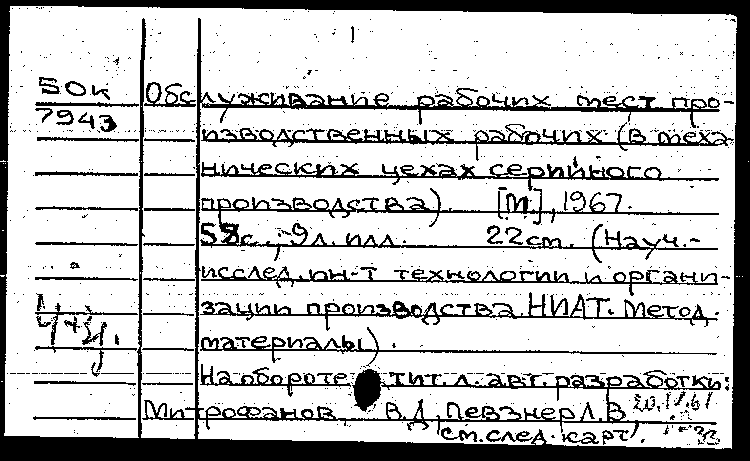 БОК Обслуживание рабочих мест про-
7943 изводственных рабочих (в меха
нических цехах серийного
производства). [М.], 1967.
с., 9 л. илл. 22 см. (Науч.-
исслед. ин-т технологии и органи-
зации производства НИАТ. Метод.
материалы).
На обороте тит. л. авт. разработки:
Митрофанов В.Д., Певзнер Л.В
см. след. карт.